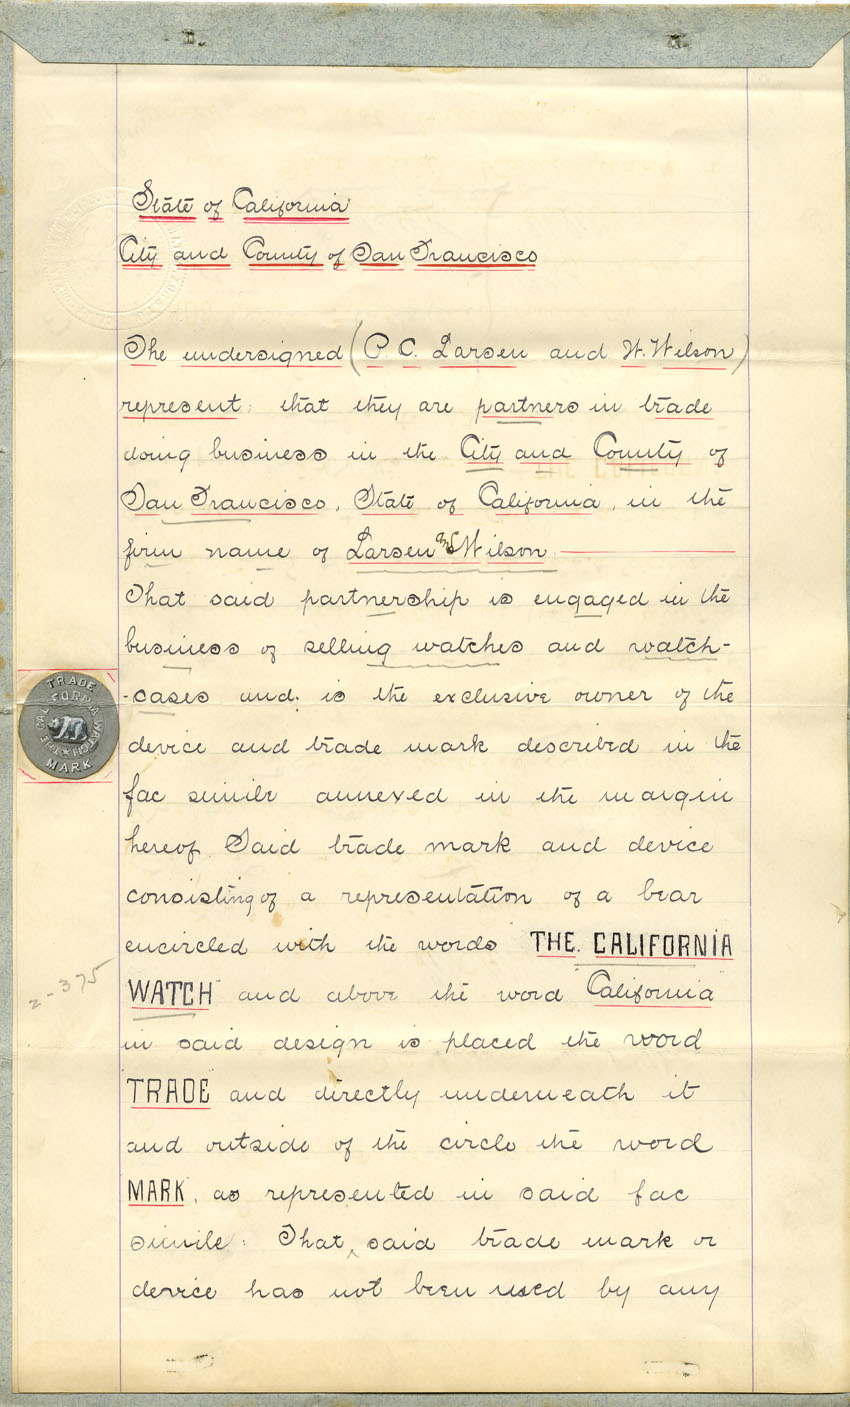 State of California
City and County of San Francisco
The undersigned (P. C. Larsen and W. Wilson)
represent: that they are partners in trade
doing business in the City and County of
San Francisco, State of California, in the
firm name of Larsen and Wilson
That said partnership is engaged in the
business of selling watches and watch-
-cases and is the exclusive owner of the
device and trade mark described in the
fac simile annexed in the margin
hereof. Said trade mark and device
consisting of a representation of a bear
encircled with the words "THE CALIFORNIA
WATCH" and above the word "California"
in said design is placed the word
"TRADE" and directly underneath it
and outside of the circle the word
"MARK", as represented in said fac
simile: That said trade mark or
device has not been used by any
TRADE
THE CALIFORNIA WATCH
MARK
2-375